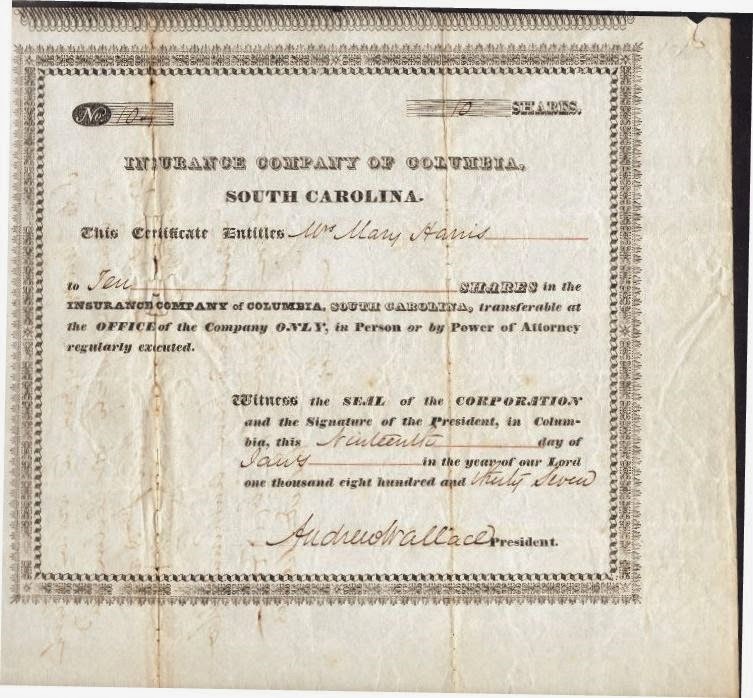 No. 10 SHARES.
INSURANCE COMPANY OF COLUMBIA,
SOUTH CAROLINA.
This Certificate Entitles Mrs Mary Harris
to Ten SHARES in the
INSURANCE COMPANY of COLUMBIA, SOUTH CAROLINA, transferable at
the OFFICE of the Company ONLY, in Person or by Power of Attorney
regularly executed.
Witness the SEAL of the CORPORATION
and the Signature of the President, in Colum-
bia, this Nineteenth day of
in the year of our Lord
one thousand eight hundred and thirty Seven
Andrew Wallace President.